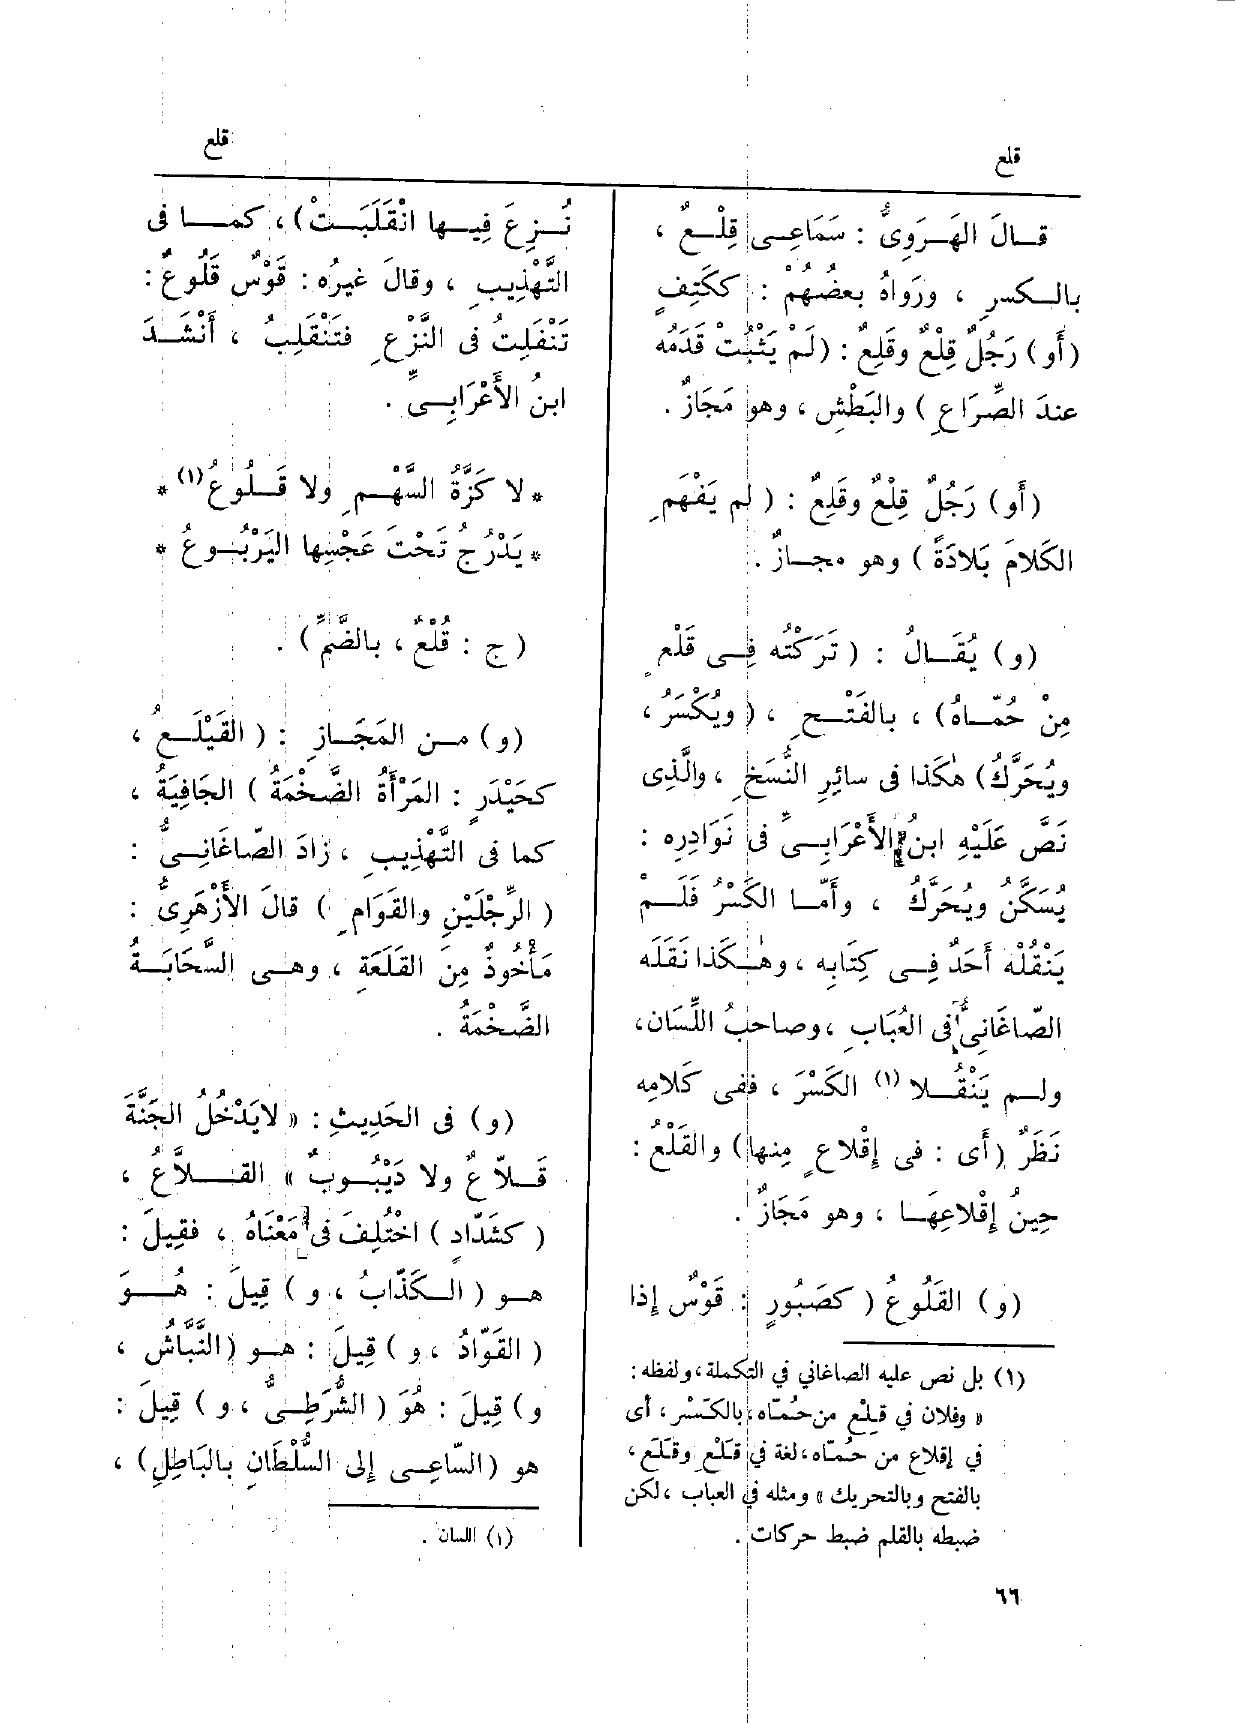 قلع
قلع
قــالَ الهَــرَوِىُّ : سَمَاعِــى قِلْــعٌ ،
بالــكسرِ ، ورَواهُ بعضُهُمْ : ككَتِفٍ
(أَو) رَجُلٌ قِلْعٌ وقَلِعٌ : (لَمْ يَثْبُتْ قَدَمُه
عندَ الصِّرَاعِ ) والبَطْشِ ، وهو مَجَازٌ .
(أَو) رَجُلٌ قِلْعٌ وقَلِعٌ : ( لم يَفْهَمِ
الكَلامَ بَلادَةً ) وهو مجــازٌ .
(و) يُقَــالُ : ( تَرَكْتُه فِــى قَلْعٍ
مِنْ حُمّــاهُ) ، بالفَتْــحِ ، ( ويُكْسَرُ ،
ويُحَرَّكُ) هٰكَذا فى سائِرِ النُّسَخِ ، والَّذِى
نَصَّ عَلَيْهِ ابنُ الأَعْرَابِــىِّ فى نَوَادِرِه :
يُسَكَّنُ ويُحَرَّكُ ، وأَمّــا الكَسْرُ فَلَــمْ
يَنْقُلْه أَحَدٌ فِــى كِتَابِه ، وهٰــكَذا نَقَلَه
الصّاغَانِىُّ فى العُبَابِ ، وصاحبُ اللِّسَان،
ولــم يَنْقُــلا (١) الكَسْرَ ، ففى كَلامِه
نَظَرٌ (أَى : فى إِقْلاعٍ مِنها) والقَلْعُ :
حِينُ إِقْلاعِهَــا ، وهو مَجَازٌ .
(و) القَلُوعُ ( كصَبُورٍ : قَوْسٌ إِذا
(١) بل نص عليه الصاغاني في التكملة، ولفظه :
« وفلان في قِلْع من حُمّاه، بالكَسْر ، أى
في إقلاع من حُمّاه، لغة في قَلْعٍ وقَلَعٍ ،
بالفتح وبالتحريك » ومثله في العباب ، لكن
ضبطه بالقلم ضبط حركات .
نُــزِعَ فِيــها انْقَلَبَــتْ) ، كمــا فى
التَّهْذِيبِ ، وقالَ غيرُه : قَوْسٌ قَلُوعٌ :
تَنْفَلِتُ فى النَّزْعِ فتَنْقَلِبُ ، أَنْشَــدَ
ابنُ الأَعْرَابِــىِّ .
* لا كَزَّةُ السَّهْــمِ ولا قَــلُوعُ (١) *
* يَدْرُجُ تَحْتَ عَجْسِها اليَرْبُــوعُ *
( ج : قُلْعٌ ، بالضَّمِّ) .
(و) مــن المَجَــازِ : ( القَيْلَــعُ ،
كحَيْدَرٍ : المَرْأَةُ الضَّخْمَةُ ) الجَافِيَةُ ،
كما فى التَّهْذِيبِ ، زادَ الصّاغَانِــىُّ :
( الرِّجْلَيْنِ والقَوَامِ ) قالَ الأَزْهَرِىُّ :
مَأْخُوذٌ مِنَ القَلَعَةِ ، وهــى السَّحَابَــةُ
الضَّخْمَةُ .
(و) فى الحَدِيثِ : « لايَدْخُلُ الجَنَّةَ
قَــلاّعٌ ولا دَيْبُــوبٌ » القَــلاَّعُ ،
( كشَدّادٍ ) اخْتُلِفَ فى مَعْنَاهُ ، فقِيلَ :
هــو ( الــكَذّابُ ، و ) قِيلَ : هُــوَ
( القَوّادُ ، و ) قِيلَ : هــو (النَّبّاشُ ،
و) قِيلَ : هُوَ ( الشُّرَطِــىُّ ، و ) قِيلَ :
هو (السّاعِــى إِلى السُّلْطَانِ بالبَاطِلِ) ،
(١) اللسان .
٦٦